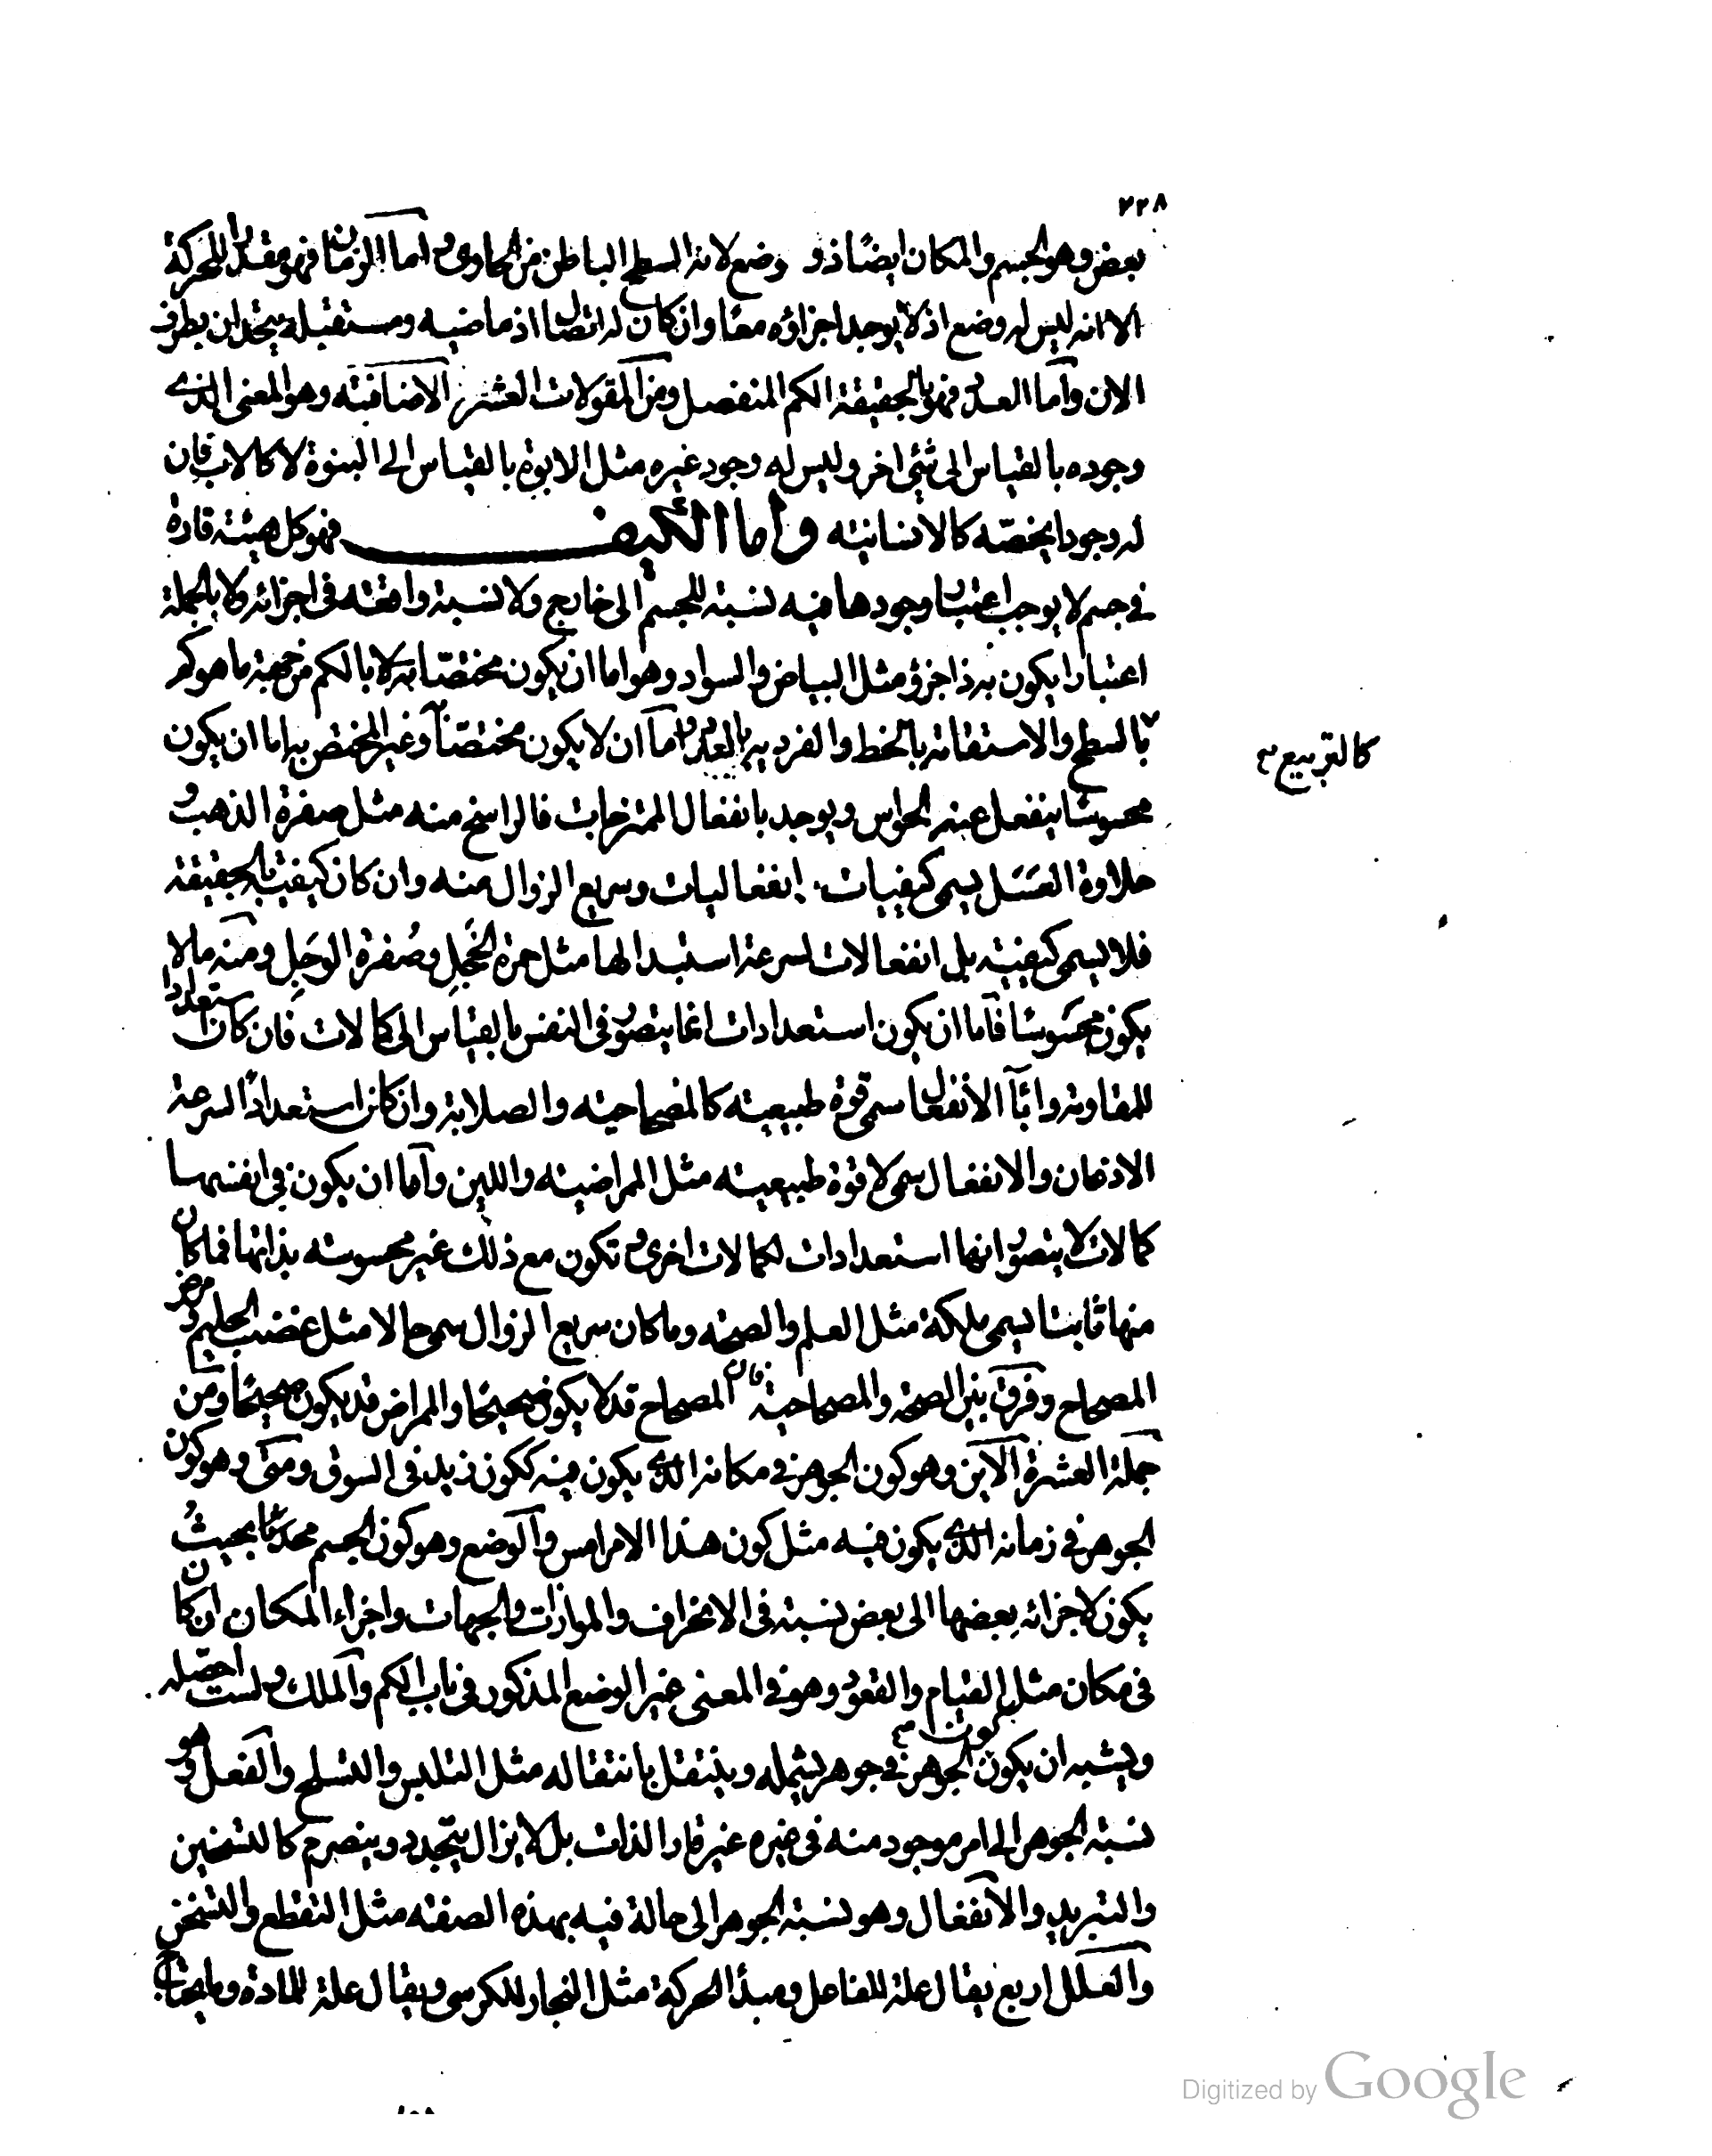 ٢٢٨
بعض وهو الجسم والمكان ايضًا ذو وضع لانه السطح الباطن من الحاوى و اما الزمان فهو مقدار للحركة
الا انه ليس له وضع اذ لا يوجد اجزاؤه معًا وان كان له اتصال اذ ماضيه ومستقبله يتحدان بطرف
الان وآما العدد فهو بالحقيقة الكم المنفصل ومن المقولات العشر الاضافة وهو المعنى الذى
وجوده بالقياس الى شئ اخر وليس له وجود غيره مثل الابوة بالقياس الى البنوة لا كالاب فان
له وجودا يخصّه كالانسانية واما الكيف فهو كل هيئة قارة
فى جسم لا يوجب اعتبار وجودها فيه نسبة للجسم الى خارج ولا نسبة واقعة فى اجزائه ولا بالجملة
اعتبارا يكون به ذا جزؤ مثل البياض والسواد وهو اما ان يكون مختصّا بالكم من جهة ما هو كم
كالتربيع
بالسطح والاستقامة بالخط والفردية بالعدد و اما ان لا يكون مختصّا به وغير المختص به اما ان يكون
محسوسًا ينفعل عنه الحواس ويوجد بانفعال الممتزجات فالراسخ منه مثل صفرة الذهب و
حلاوة العَسَل يسمى كيفيات انفعاليات وسريع الزوال منه وان كان كيفية بالحقيقة
فلا يسمى كيفية بل انفعالات لسرعة استبدالها مثل حمرة الخَجِل وصُفرة الوَجِل ومنه ما لا
يكون محسوسًا فآما ان يكون استعدادات انما يتصوّر فى النفس بالقياس الى كمالات فان كان استعدادا
للمقاومة وابآء الانفعال سمى قوة طبيعية كالمصحاحية والصلابة وان كان استعدادًا لسرعة
الاذعان والانفعال سمى لا قوة طبيعية مثل الممراضية واللين وآما ان يكون فى انفسها
كمالات لا يتصوّر انها استعدادات لكمالات اخرى و تكون مع ذلك غير محسوسة بذاتها فما كان
منها ثابتا يسمى ملكة مثل العلم والصحة وما كان سريع الزوال سمى حالا مثل غضب الحليم ومرض
المصحاح وفرق بين الصحة والمصحاحية فان المصحاح قد لا يكون صحيحًا والممراض قد يكون صحيحًا ومن
جملة العشرة الاين وهو كون الجوهر فى مكانه الذى يكون فيه ككون زيد فى السوق ومتى وهو كون
الجوهر فى زمانه الذى يكون فيه مثل كون هذا الامر امس والوضع وهو كون الجسم بحيث
يكون لاجزائه بعضها الى بعض نسبة فى الانحراف والموازات والجهات واجزاء المكان ان كان
فى مكان مثل القيام والقعود وهو فى المعنى غير الوضع المذكور فى باب الكم والملك ولست احصله
ويشبه ان يكون كون الجوهر فى جوهر يشمله وينتقل بانتقاله مثل التلبس والتسلح والفعل وهو
نسبة الجوهر الى امر موجود منه فى غيره غير قار الذات بل لا يزال يتجدد وينصرم كالتسخين
والتبريد والانفعال وهو نسبة الجوهر الى حالة فيه بهذه الصفة مثل التقطع والتسخن
والعلل اربع يقال علة للفاعل ومبدأ الحركة مثل النجار للكرسى ويقال علة للمادة وما يحتاج
Digitized by Google